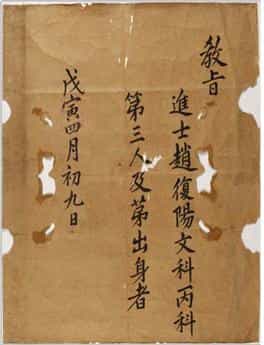 教旨
進士趙復陽文科丙科
第三人及第出身者
戊寅四月初九日